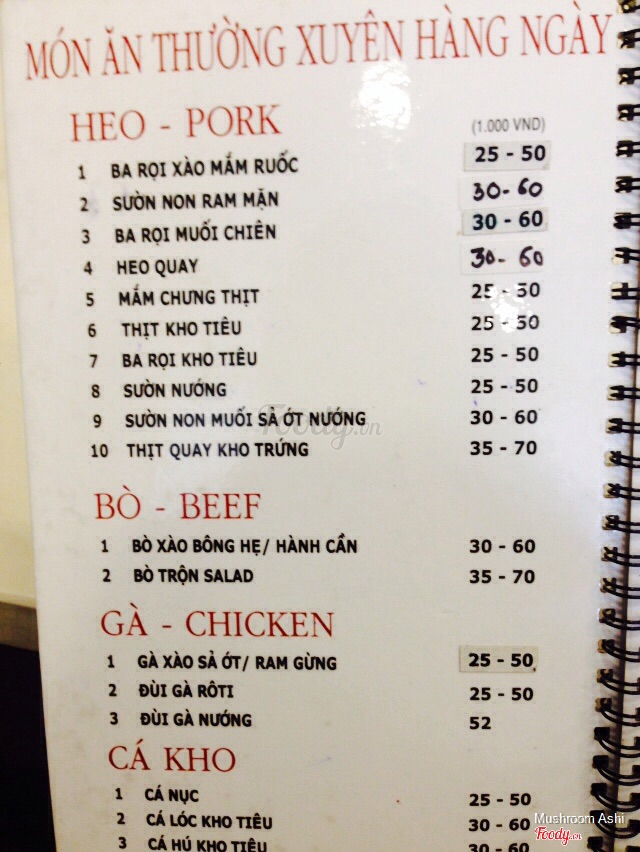 MÓN ĂN THƯỜNG XUYÊN HÀNG NGÀY
HEO - PORK (1.000 VND)
1 BA RỌI XÀO MẮM RUỐC 25 - 50
2 SƯỜN NON RAM MẶN 30-60
3 BA RỌI MUỐI CHIÊN 30 - 60
4 HEO QUAY 30-60
5 MẮM CHƯNG THỊT 25 - 50
6 THỊT KHO TIÊU 25 - 50
7 BA RỌI KHO TIÊU 25 - 50
8 SƯỜN NƯỚNG 25 - 50
9 SƯỜN NON MUỐI SẢ ỚT NƯỚNG 30 - 60
10 THỊT QUAY KHO TRỨNG 35 - 70
Foody.vn
BÒ - BEEF
1 BÒ XÀO BÔNG HẸ/ HÀNH CẦN 30 - 60
2 BÒ TRỘN SALAD 35 - 70
GÀ - CHICKEN
1 GÀ XÀO SẢ ỚT/ RAM GỪNG 25 - 50
2 ĐÙI GÀ RÔTI 25 - 50
3 ĐÙI GÀ NƯỚNG 52
CÁ KHO
1 CÁ NỤC 25 - 50
2 CÁ LÓC KHO TIÊU 30 - 60
3 CÁ HÚ KHO TIÊU 30 - 60
Mushroom Ashi
Foody.vn